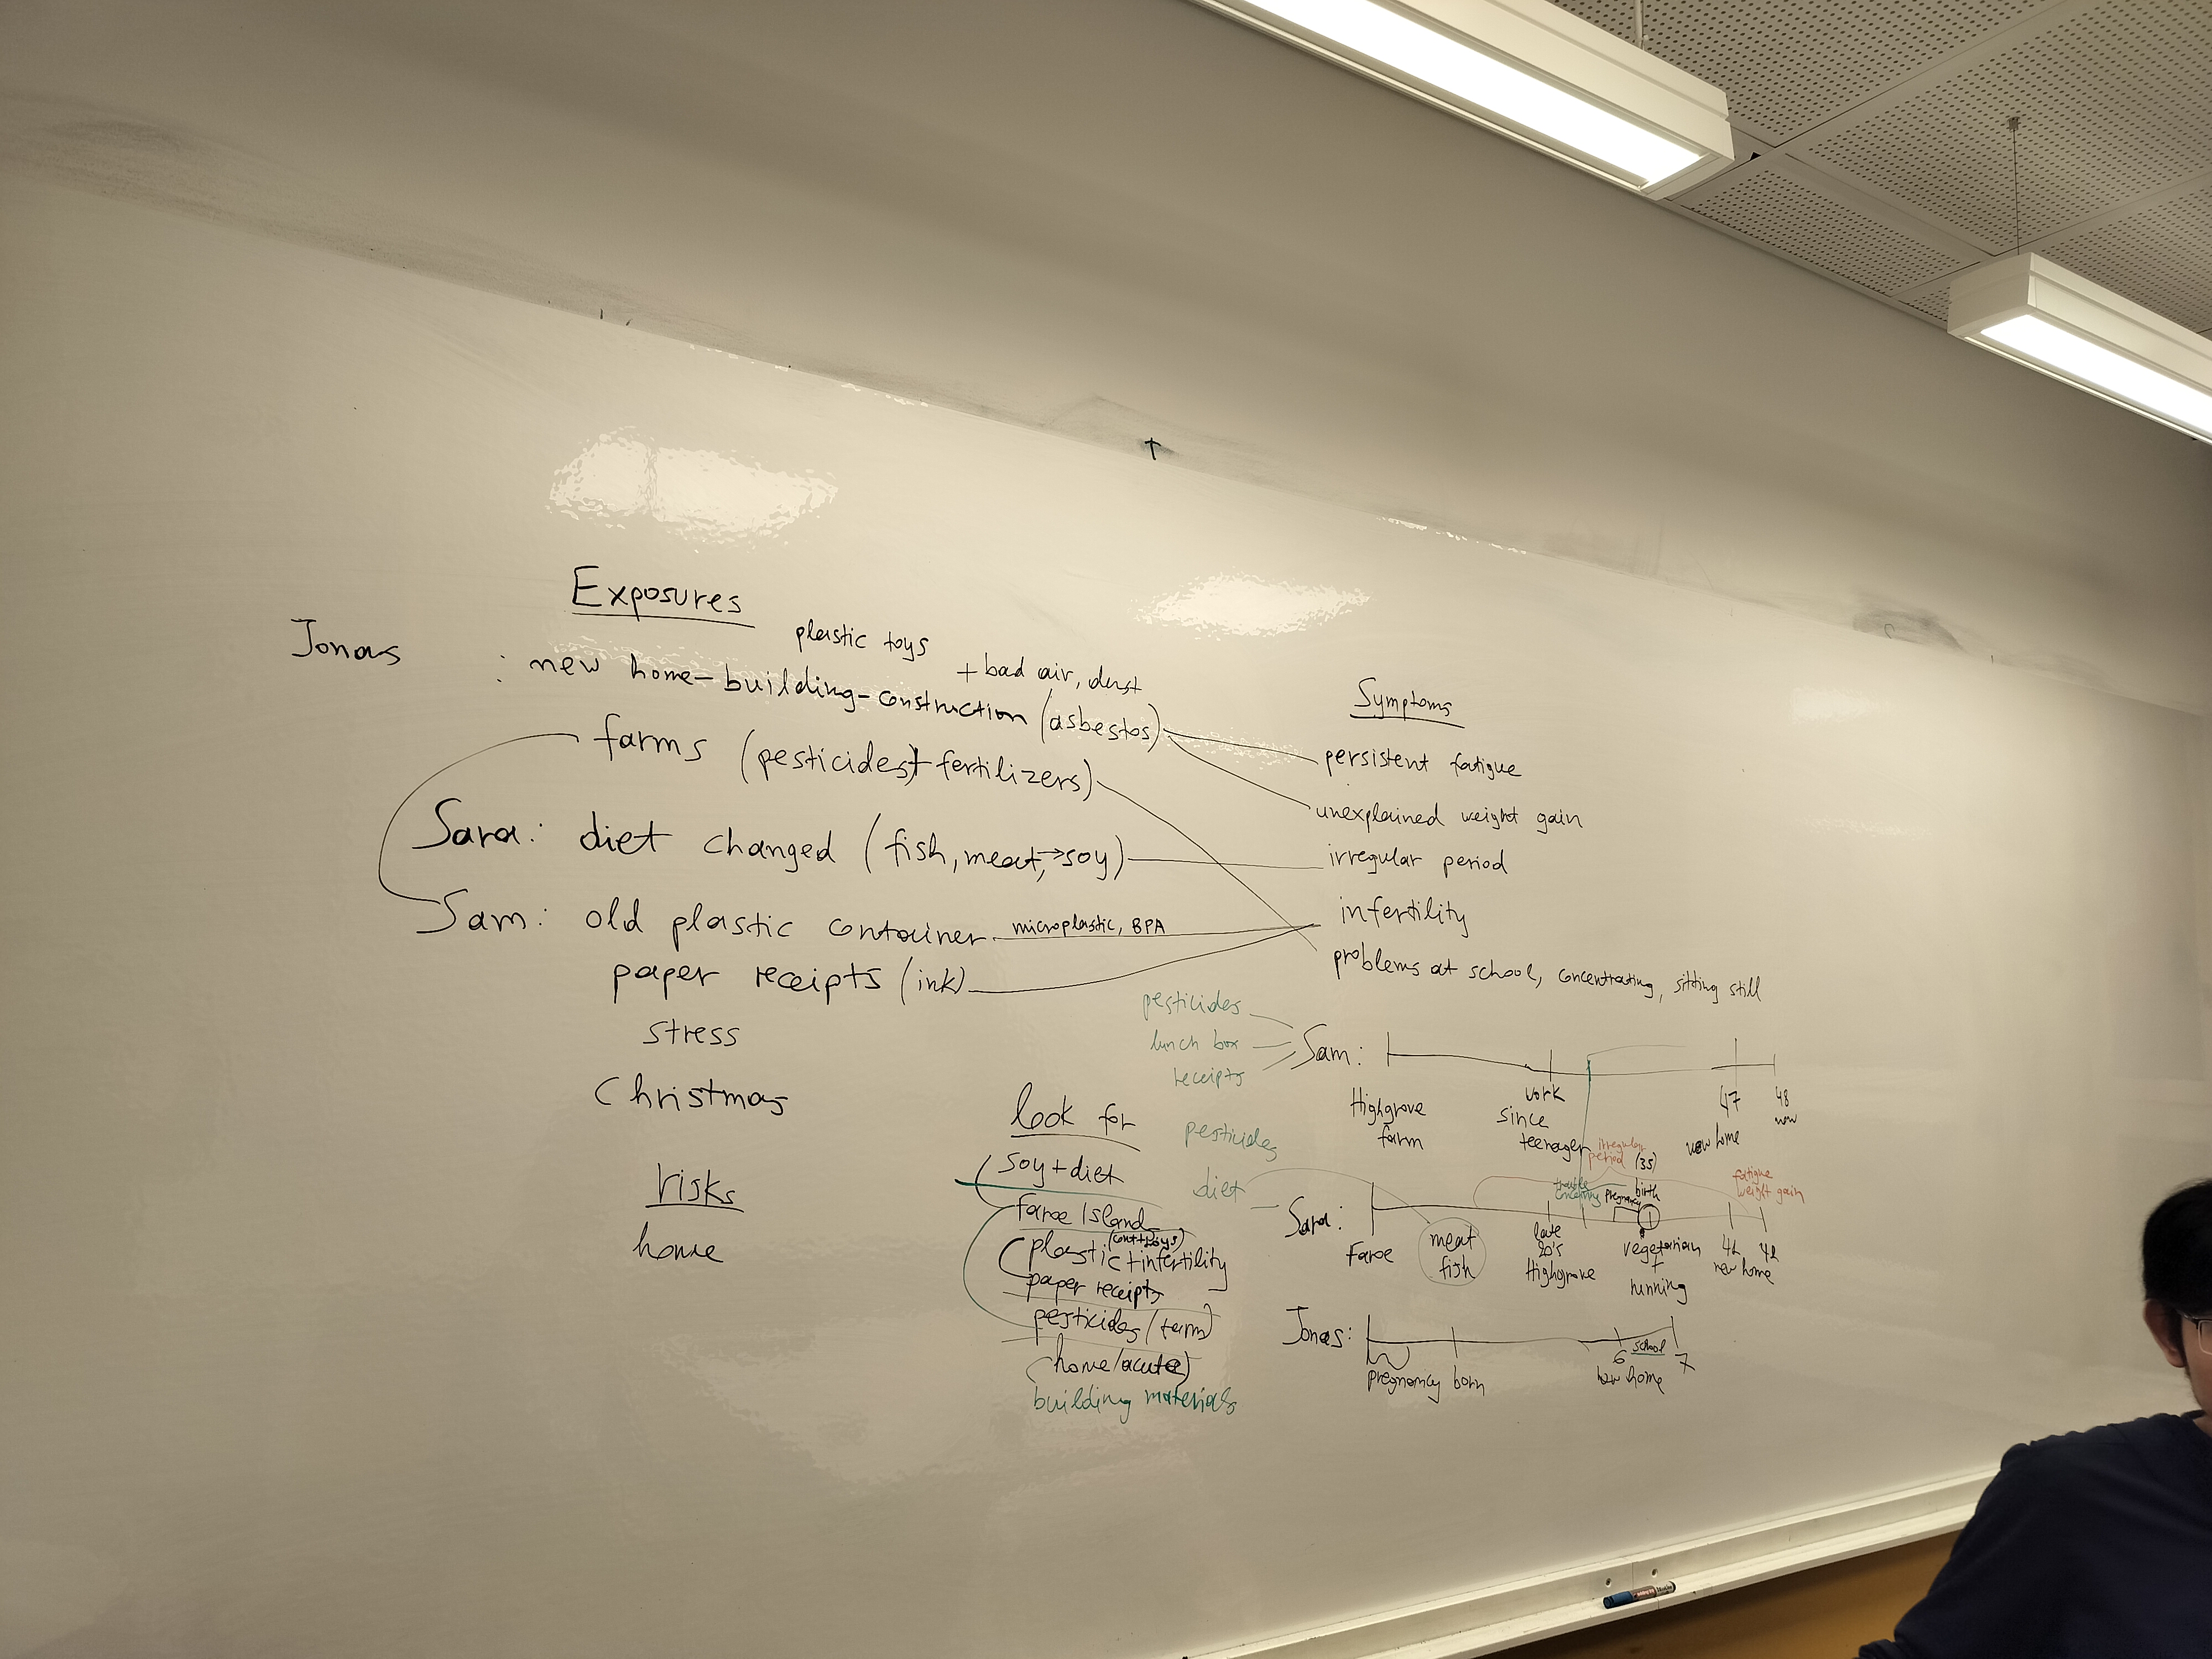 Exposures
Jonas : new home-building-construction (asbestos)
plastic toys
+ bad air, dust
farms (pesticides + fertilizers)
Sara: diet changed (fish, meat, → soy)
Sam: old plastic container microplastic, BPA
paper receipts (ink)
stress
Christmas
risks
home
Symptoms
persistent fatigue
unexplained weight gain
irregular period
infertility
problems at school, concentrating, sitting still
look for
soy + diet
faroe Island
(cont+toys)
plastic + infertility
paper receipts
pesticides (farm)
home (acute)
building materials
pesticides
lunch box
receipts
Sam:
Highgrove
farm
work
since
teenager
47
new home
48
now
pesticides
diet
Sara:
Faroe
meat
fish
late
20's
Highgrove
trouble
conceiving
irregular
period (35)
pregnancy
birth
vegetarian
+
running
new home
fatigue
weight gain
Jonas:
pregnancy
born
6
school
7
new home